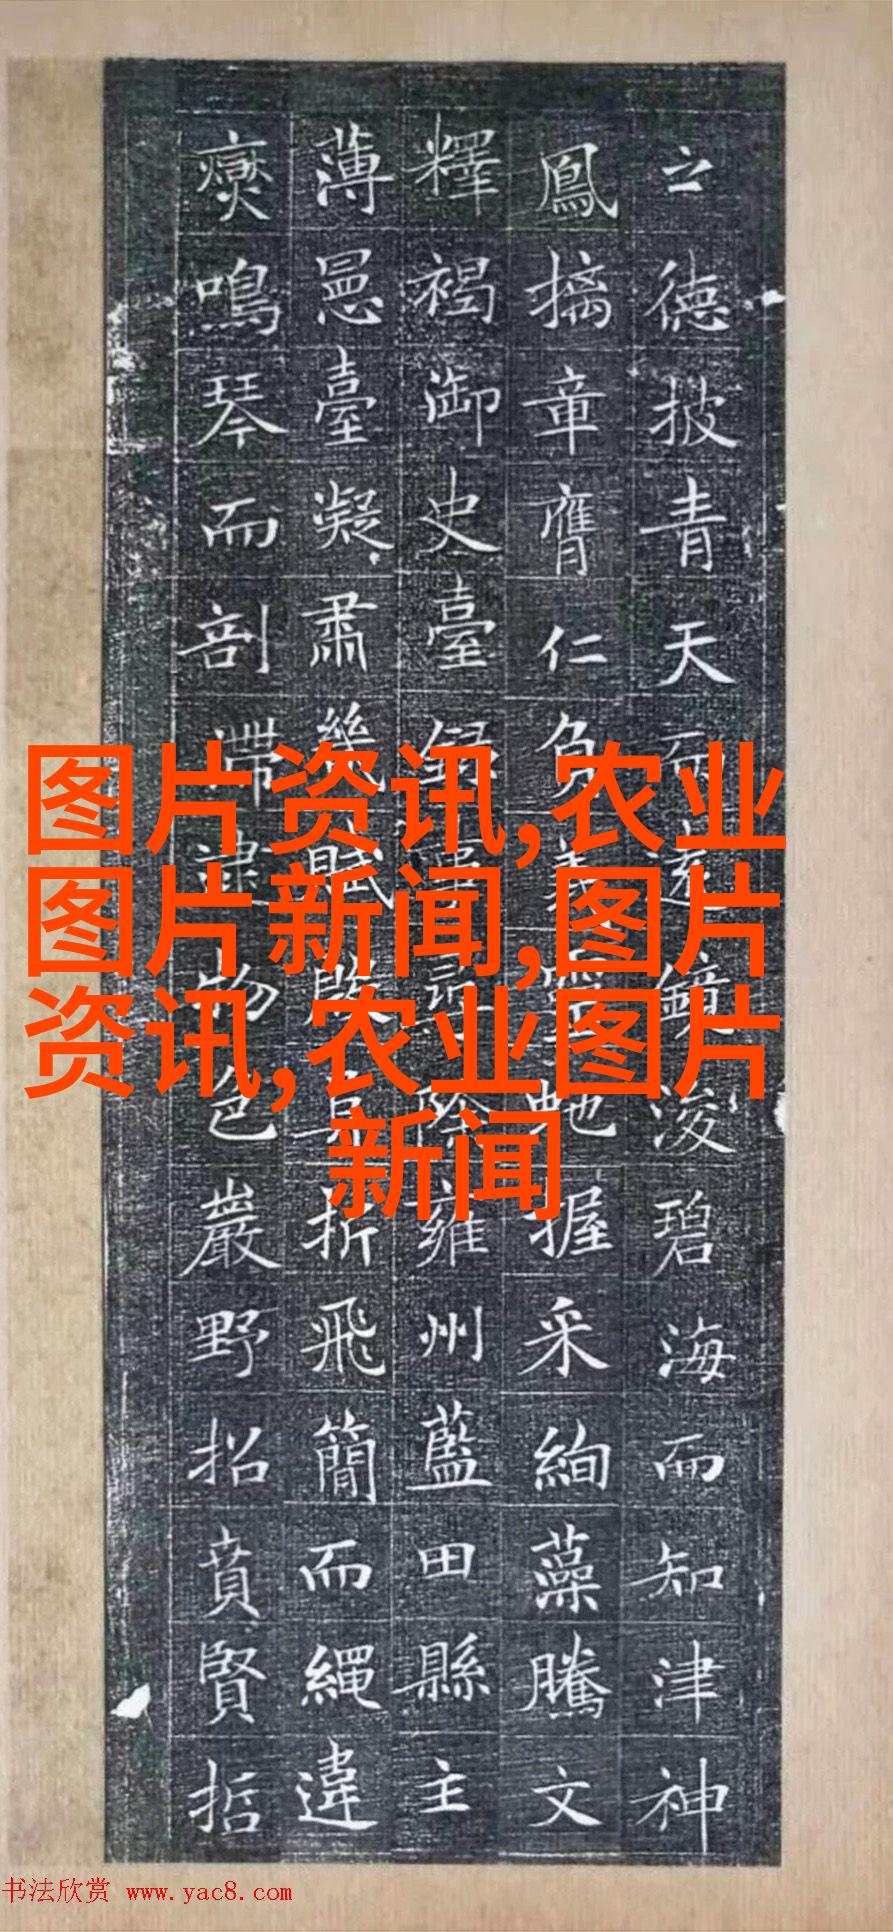 之德披青天而遠鏡浚碧海而知津神
鳳摛章膺仁負義靈虵握采絢藻騰文
釋褐御史臺錄事尋除雍州藍田縣主
薄臺凝肅幾賦折飛簡而繩違
鳴琴而剖滯逮物色巖野招賁賢哲
图片资讯,农业
图片新闻,图片
资讯,农业图片
新闻
书法欣赏 www.yac8.com